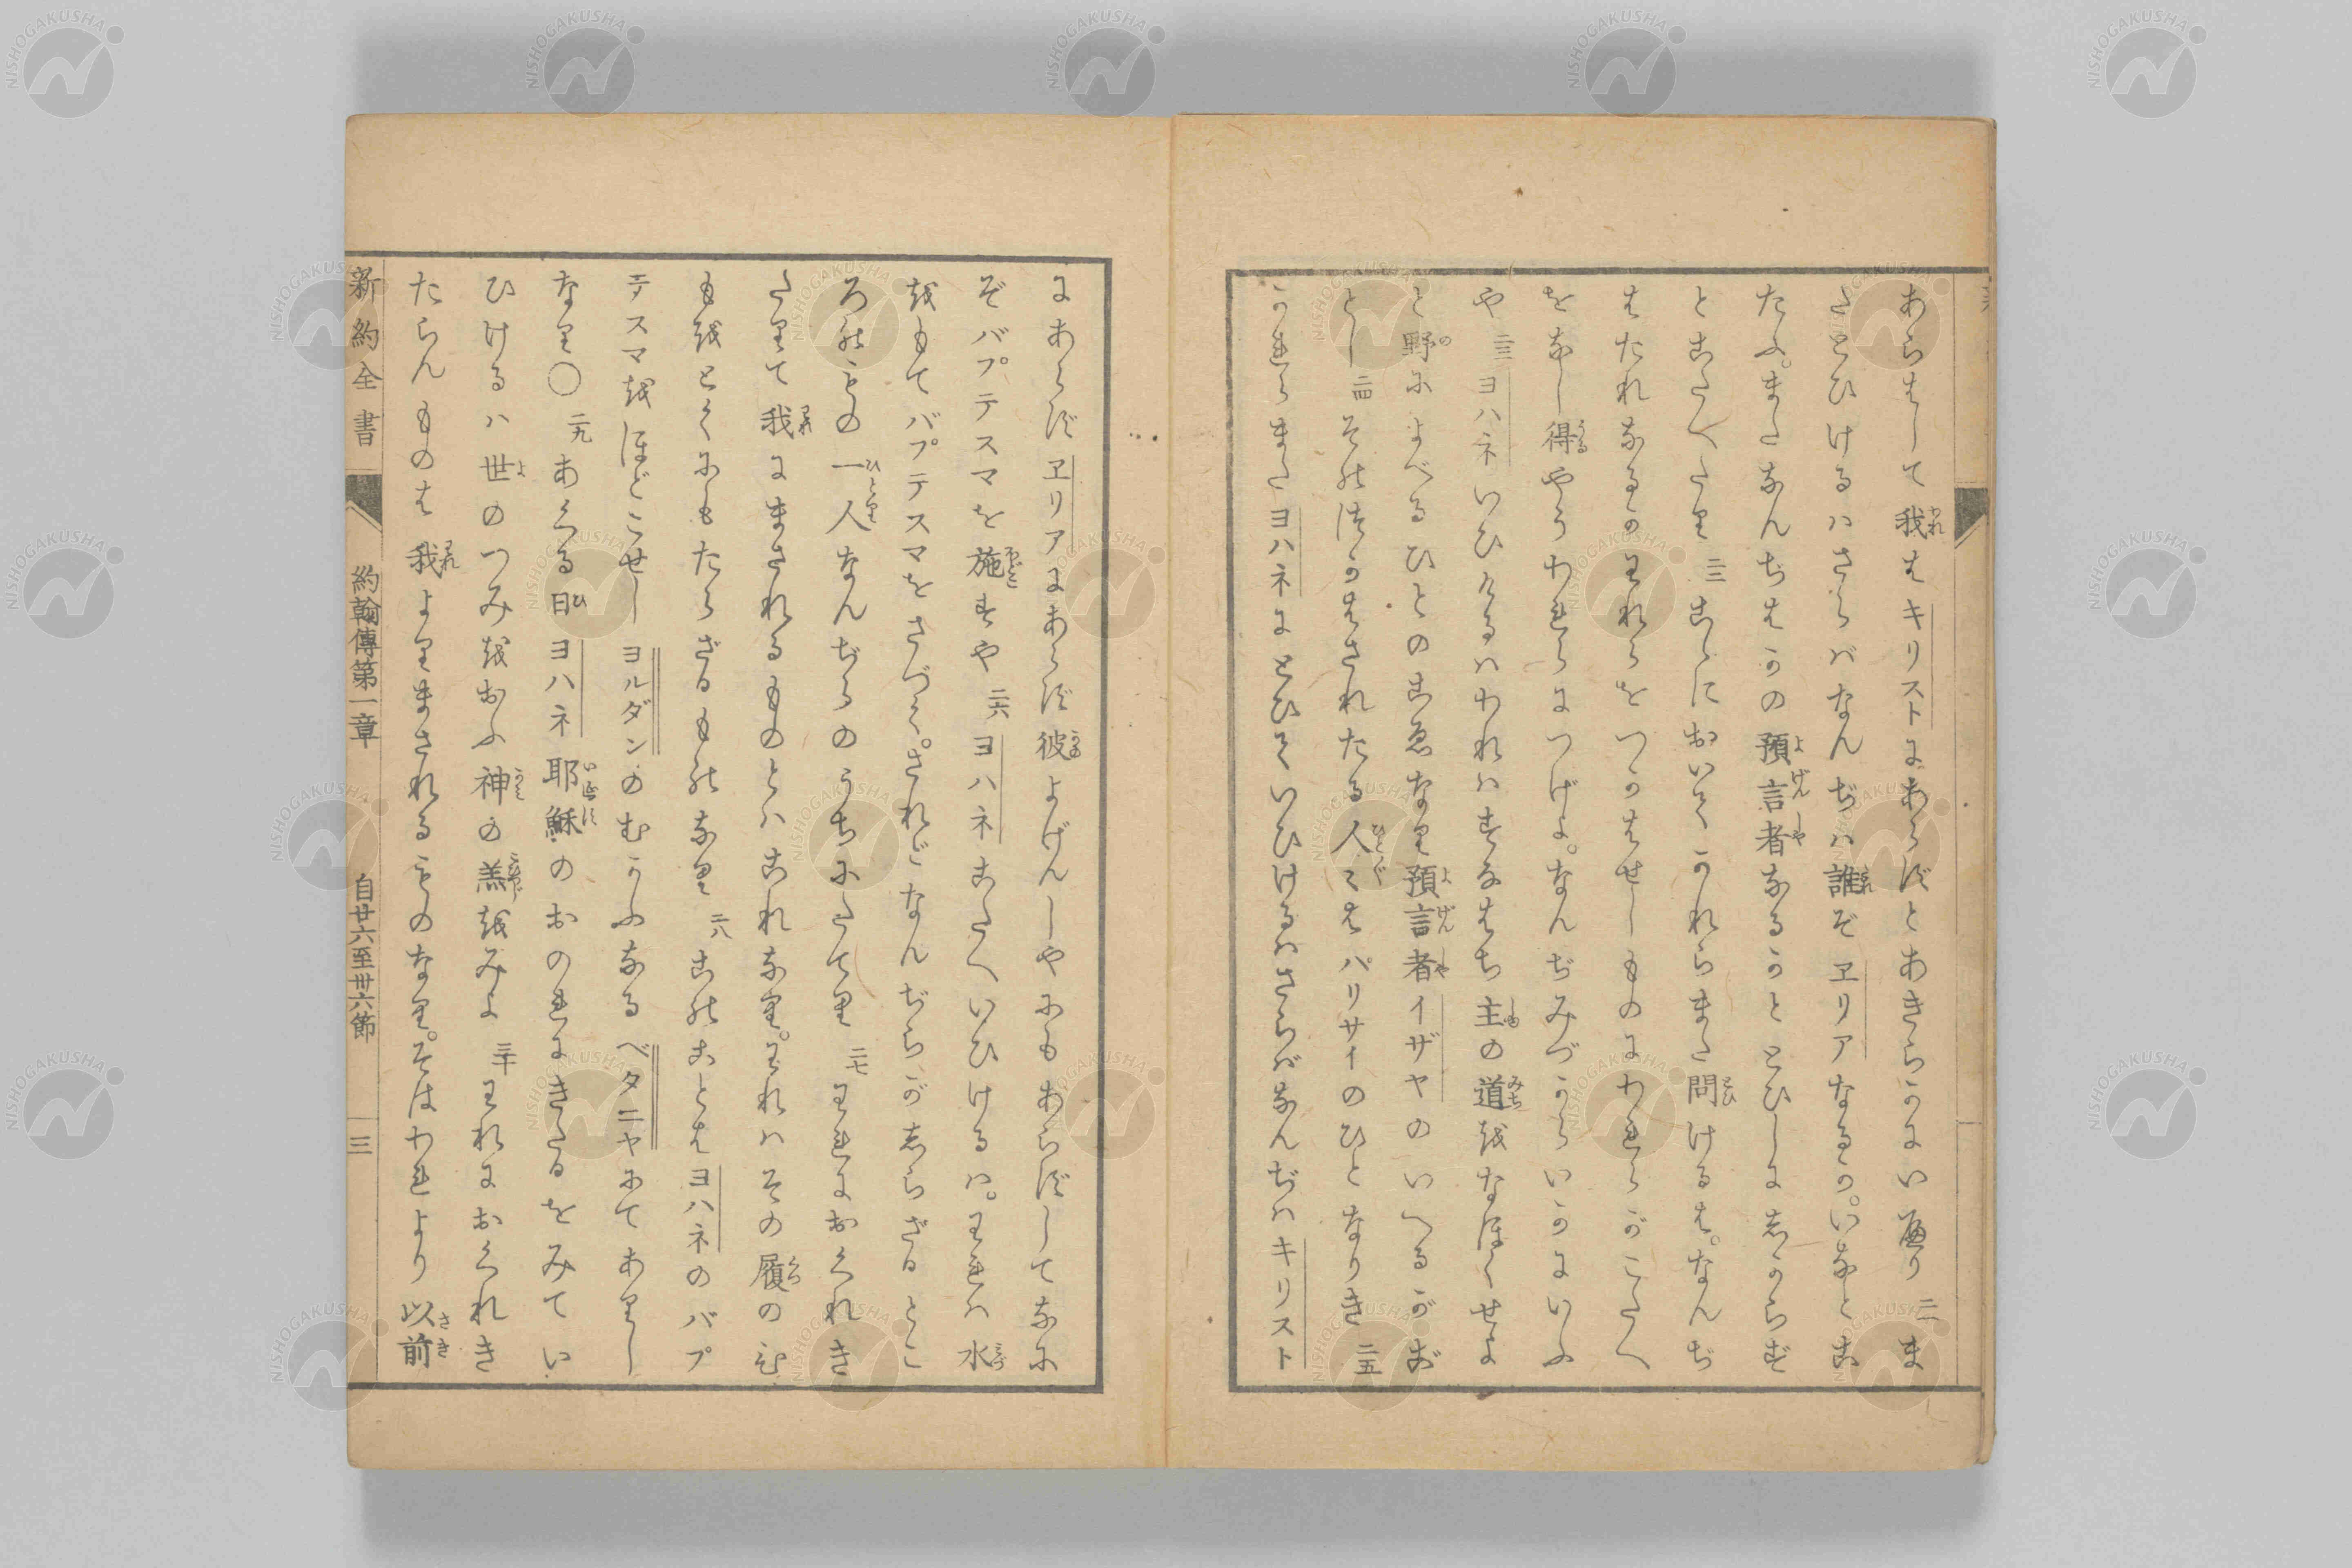 あらはして我はキリストにあらずとあきらかにい遍り 二一 ま
たとひけるハさらバなんぢハ誰ぞヱリアなるか。いなとこ
たふ。またなんぢはかの預言者なるかととひしにしからず
とこたへたり 二二 こゝにおいてかれらまた問けるは。なんぢ
はたれなるかわれらをつかはせしものにわれらがこたへ
をなし得やうわれらにつげよ。なんぢみづからいかにいふ
や 二三 ヨハネいひけるハわれハすなはち主の道をなほくせよ
と野によべるひとのこゑなり預言者イザヤのいへるがご
とし 二四 その徒かはされたる人々はパリサイのひとなりき 二五
かれらまたヨハネにとひていひけるハさらバなんぢハキリスト
にあらずヱリアにあらず彼よげんしやにもあらずしてなに
ぞバプテスマを施すや 二六 ヨハネこたへいひけるハ。われハ水
をもてバプテスマをさづく。されどなんぢらがしらざるとこ
ろのもの一人なんぢらのうちにたてり 二七 われにおくれき
たりて我にまされるものとハこれなり。われハその履のひ
もをとくにもたらざるものなり 二八 このことはヨハネのバプ
テスマをほどこせしヨルダンのむかふなるベタニヤにてありし
なり〇 二九 あくる日ヨハネ耶穌のおのれにきたるをみてい
ひけるハ世のつみをおふ神の羔をみよ 三十 われにおくれき
たらんものは我よりまされるものなり。そはわれより以前
新約全書 約翰傳第一章 自廿六至卅六節 三
NISHOGAKUSHA